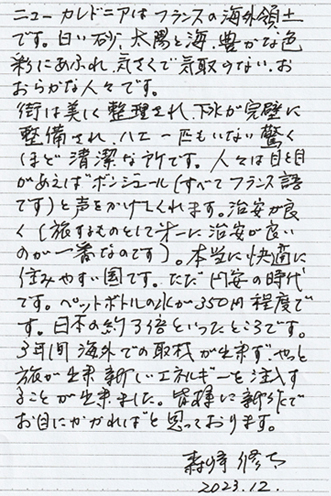 ニューカレドニアはフランスの海外領土
です。白い砂、太陽と海、豊かな色
彩にあふれ、気さくで気取りのない、お
おらかな人々です。
街は美しく整理され、下水が完璧に
整備され、ハエ一匹もいない驚く
ほど清潔な所です。人々は目と目
があえばボンジュール(すべてフランス語
です)と声をかけてくれます。治安が良
く(旅するものとして第一に治安が良い
のが一番なのです)。本当に快適に
住みやすい国です。ただ円安の時代
です。ペットボトルの水が350円程度で
す。日本の約3倍といったところです。
3年間海外での取材が出来ず、やっと
旅が出来新しいエネルギーを注入す
ることが出来ました。皆様に新作で
お目にかかればと思っております。
2023.12.